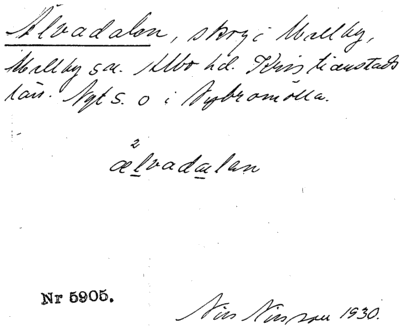 Älvadalen, skog i Mellby,
Mellby sn. Albo hd. Kristianstads
län. Åbybromölla.
2
ælvadælan
Nr 5905.
Nils Nilsson 1930.